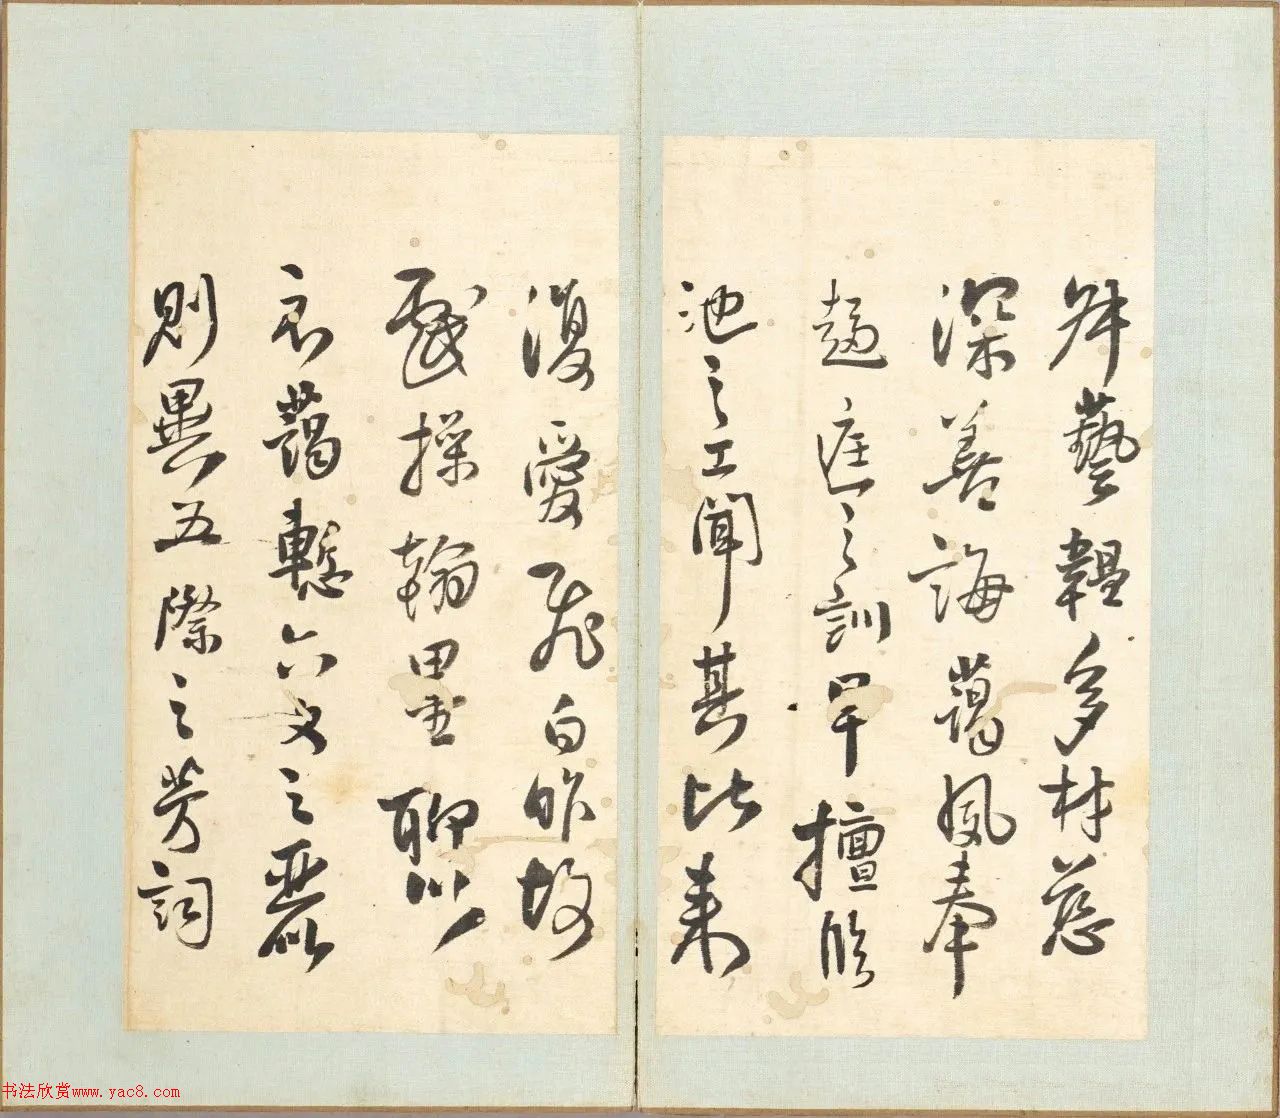 舛藝韞多材慈
深善誨藹夙奉
趨庭之訓早擅臨
池之工聞其比来
復愛飛白昨故
戲操翰墨聊以
衣藹慙六文之麗
則異五際之芳詞
书法欣赏www.yac8.com